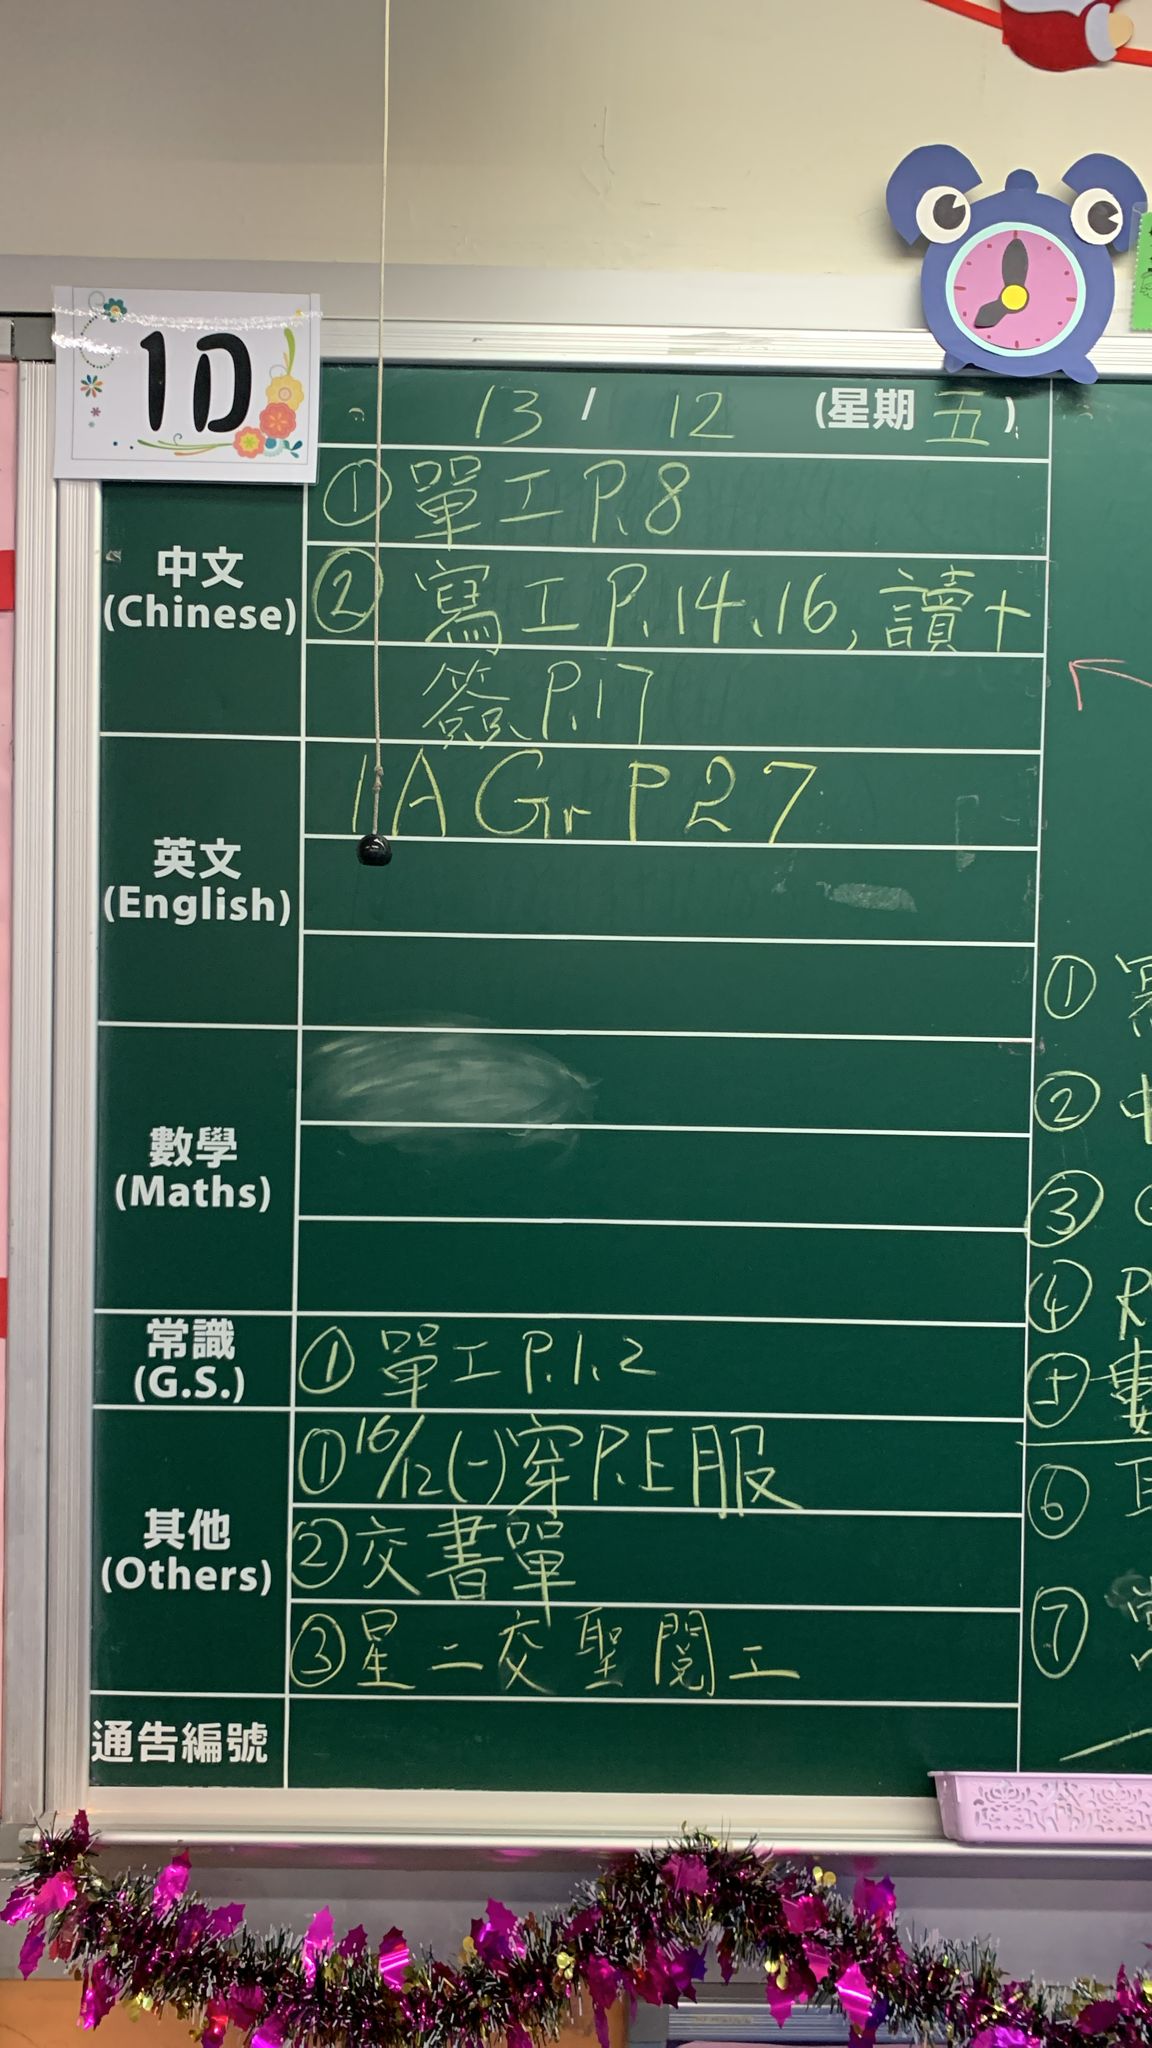 1D
13 / 12 (星期五)
中文
(Chinese)
① 單工 P.8
② 寫工 P.14、16, 讀+
簽 P.17
英文
(English)
1A Gr P 27
數學
(Maths)
常識
(G.S.)
① 單工 P.1、2
其他
(Others)
① 16/12 (一) 穿 P.E 服
② 交書單
③ 星二交聖閱工
通告編號
①
②
③
④ R
⑤ 數
⑥
⑦